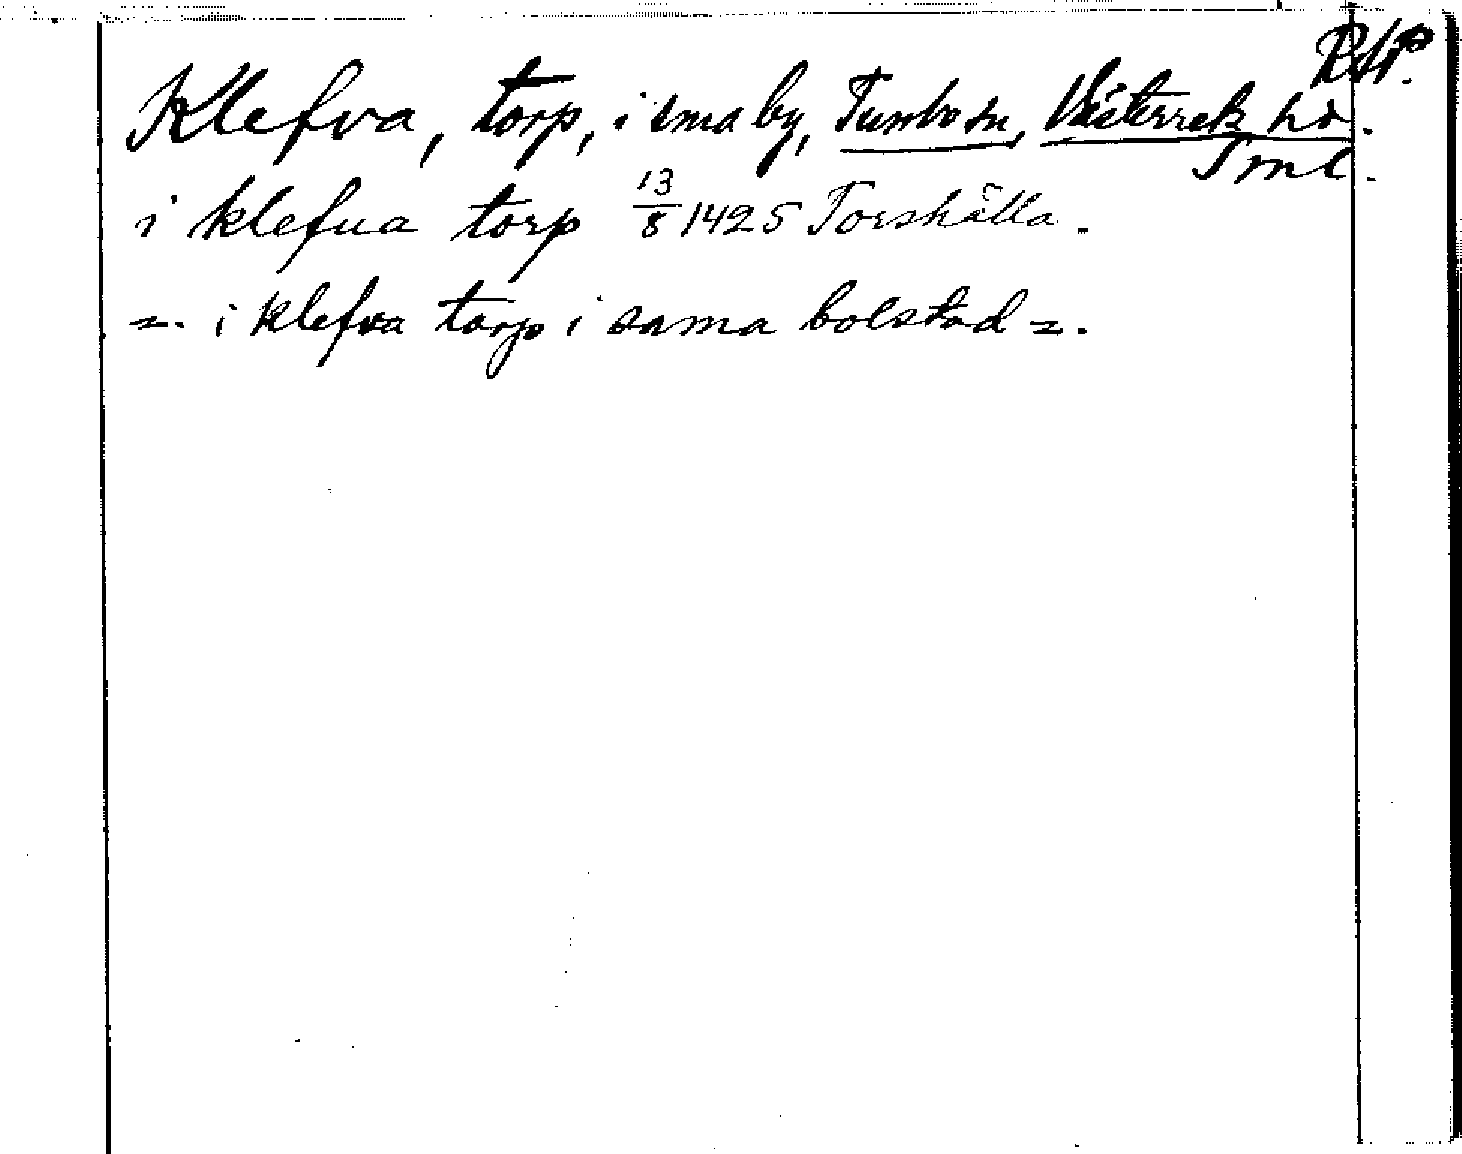 RAP.
Klefva, torp, i sma by, Tumbo sn, Västerrek hd.
Sml.
i klefua torp 13/8 1425 Torshälla.
=. i klefva torp i sama bolstad =.